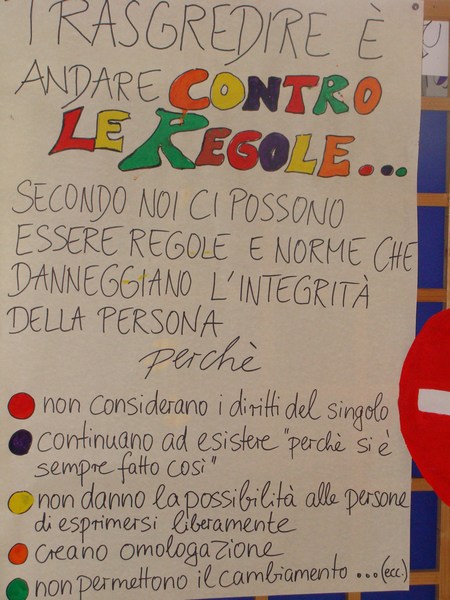 TRASGREDIRE È
ANDARE CONTRO
LE REGOLE...
SECONDO NOI CI POSSONO
ESSERE REGOLE E NORME CHE
DANNEGGIANO L'INTEGRITÀ
DELLA PERSONA
perchè
non considerano i diritti del singolo
continuano ad esistere "perchè si è
sempre fatto così"
non danno la possibilità alle persone
di esprimersi liberamente
creano omologazione
non permettono il cambiamento ... (ecc.)